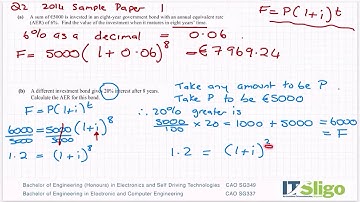 Q2 2014 Sample Paper 1
F = P(1+i)^t
(a) A sum of €5000 is invested in an eight-year government bond with an annual equivalent rate
(AER) of 6%. Find the value of the investment when it matures in eight years' time.
6% as a decimal = 0.06
F = 5000(1 + 0.06)^8 = €7969.24
(b) A different investment bond gives 20% interest after 8 years.
Calculate the AER for this bond.
F = P(1+i)^t
6000/5000 = 5000/5000 (1+i)^8
1.2 = (1+i)^8
Take any amount to be P.
Take P to be €5000
∴ 20% greater is
5000/100 × 20 = 1000 + 5000 = 6000
= F
1.2 = (1+i)
Bachelor of Engineering (Honours) in Electronics and Self Driving Technologies CAO SG349
Bachelor of Engineering in Electronic and Computer Engineering CAO SG337
IT Sligo